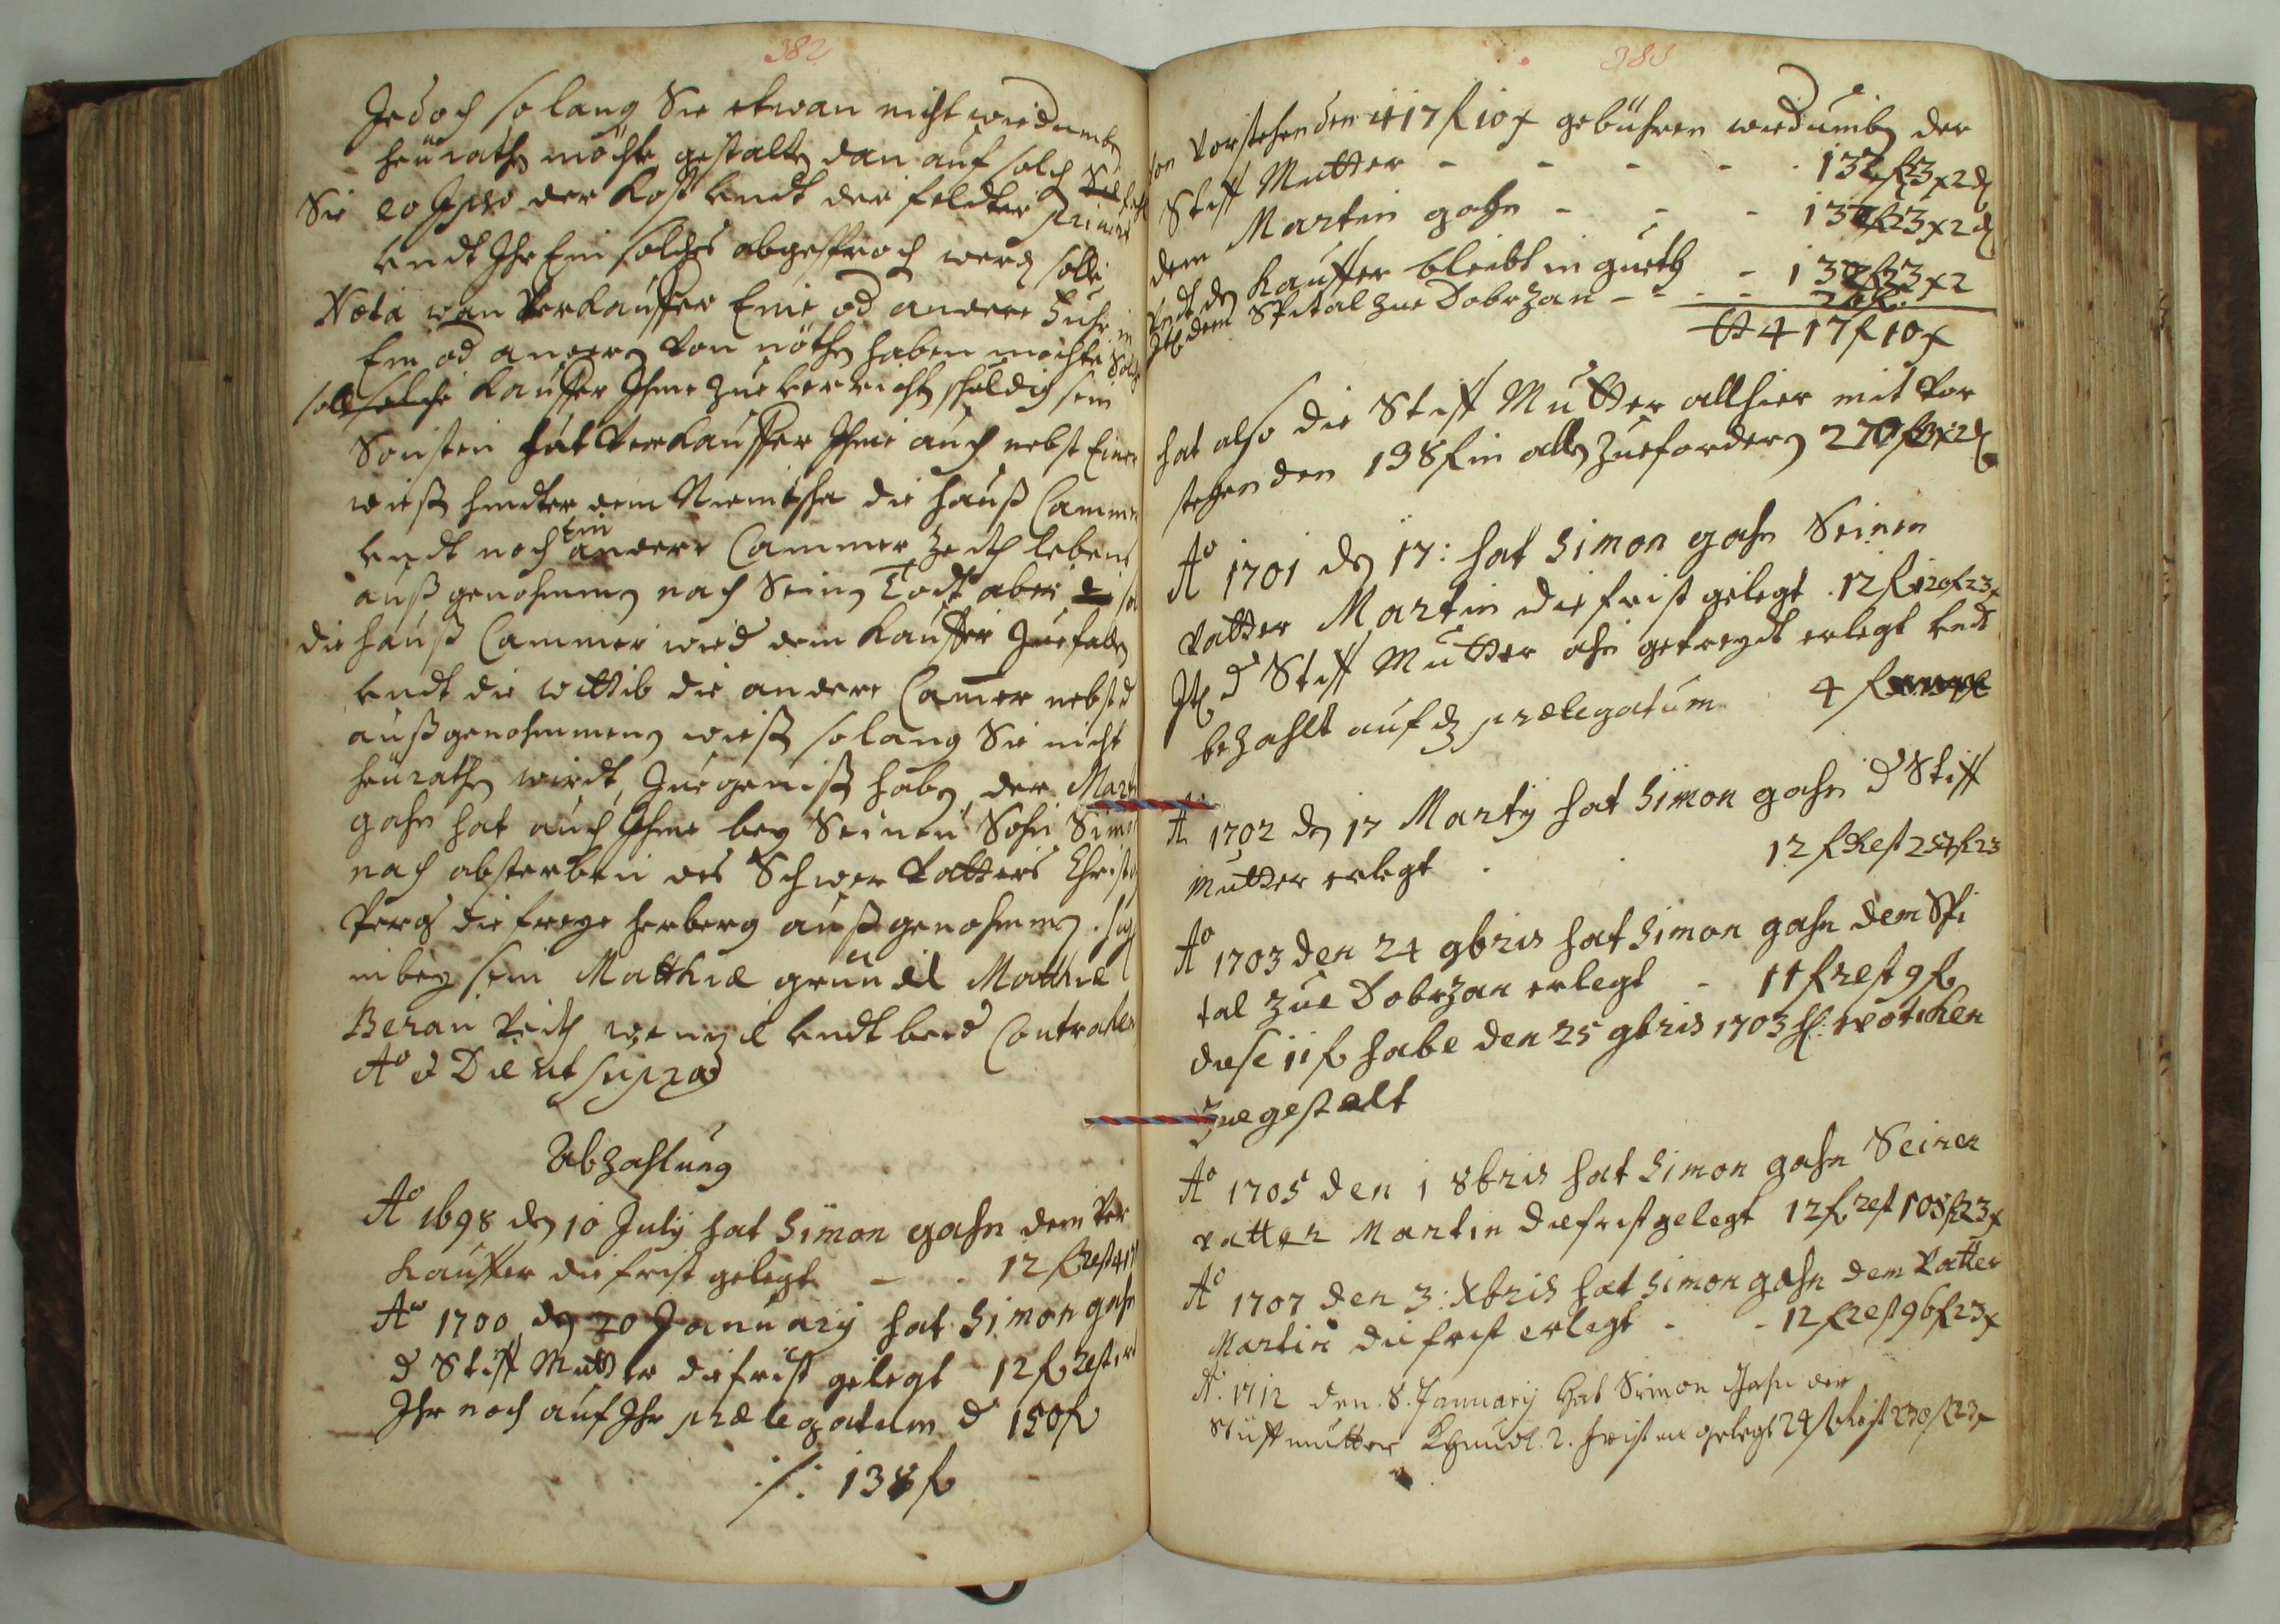 382
Jedoch so lang Sie etwan nicht wiedumb
heürath möchte, gestalte dan auf solch
Sie eo Ipso der Kost undt der feldter priuirt
undt Ihr Ein solches abgesproch werd solle
Nota wan Verkauffer Eine od andere Fuhr in
Ein od andern von nöthe haben möchte Solche
soll solche Kauffer Ihme zue verricht schuldig sein
Sonsten hat Verkauffer Ihme auch nebst Einer
wieß hindter dem die hauß Cammer
undt noch Ein andere Cammer zeith lebens
außgenohmmen nach Sein Todt aber so
die hauß Cammer wied dem Kauffer zuefall
undt die wittib die andere Camer nebst d
außgenohmmen wieß so lang Sie nicht
heürathe wirdt, zue genieß hab, der Mart
gahn hat auch Ihme bey Seinen Sohn Sim
nach absterben des Schwer Vatters Christo
die freye herberg außgenohmmen.
inbey sein Matthiæ gründl Mathie
Beran Veith undt beed Contrahen
Aō & Die ut supra
Abzahlung
Aō 1698 den 10 July hat Simon gahn dem Ver
Kauffer die frist gelegt - . 12 f rest 41
Aō 1700 den 20 January hat Simon gahn
d Stiff Mutter die frist gelegt 12 f rest
Ihr noch auf Ihr prælegatum d 150 f
./. 138 f
383
von Vorstehenden 417 f 10 x gebühren wiedumb der
Stiff Mutter - - - - - 132 f 23 x 2 d
dem Martin gahn - - - 132 f 23 x 2 d
undt den Kauffer bleibt in gueth - 132 f 23 x 2
It dem Spital zue Dobrzan - - - - 20 f.
417 f 10 x
hat also die Stiff Mutter allhier mit Vor
stehenden 138 f in alles zuefordern 270 f 23 x 2 d
Aō 1701 den 17: hat Simon gahn Seinen
Vatter Martin die frist gelegt . 12 f 120 f 23 x
It d Stiff Mutter ahn getreydt erlegt undt
bezahlt auf dz prælegatum 4 f
A 1702 den 17 Marty hat Simon gahn d Stiff
Mutter erlegt . . 12 f Rest 254 f 23
Aō 1703 den 24 9bris hat Simon gahn dem Spi
tal zue Dobrzan erlegt - 11 f rest 9 f
diese 11 f habe den 25 9bris 1703
zue gestelt
Aō 1705 den 1 8bris hat Simon gahn Seinen
Vatter Martin die frist gelegt 12 f rest 108 f 23 x
Aō 1707 den 3: Xbris hat Simon gahn dem Vatter
Martin die frist erlegt - - 12 f rest 96 f 23 x
A. 1712 den. 8. January hat Simon Gahn der
Stüffmutter 2. fristen gelegt 24 f Rest 230 f 23 x